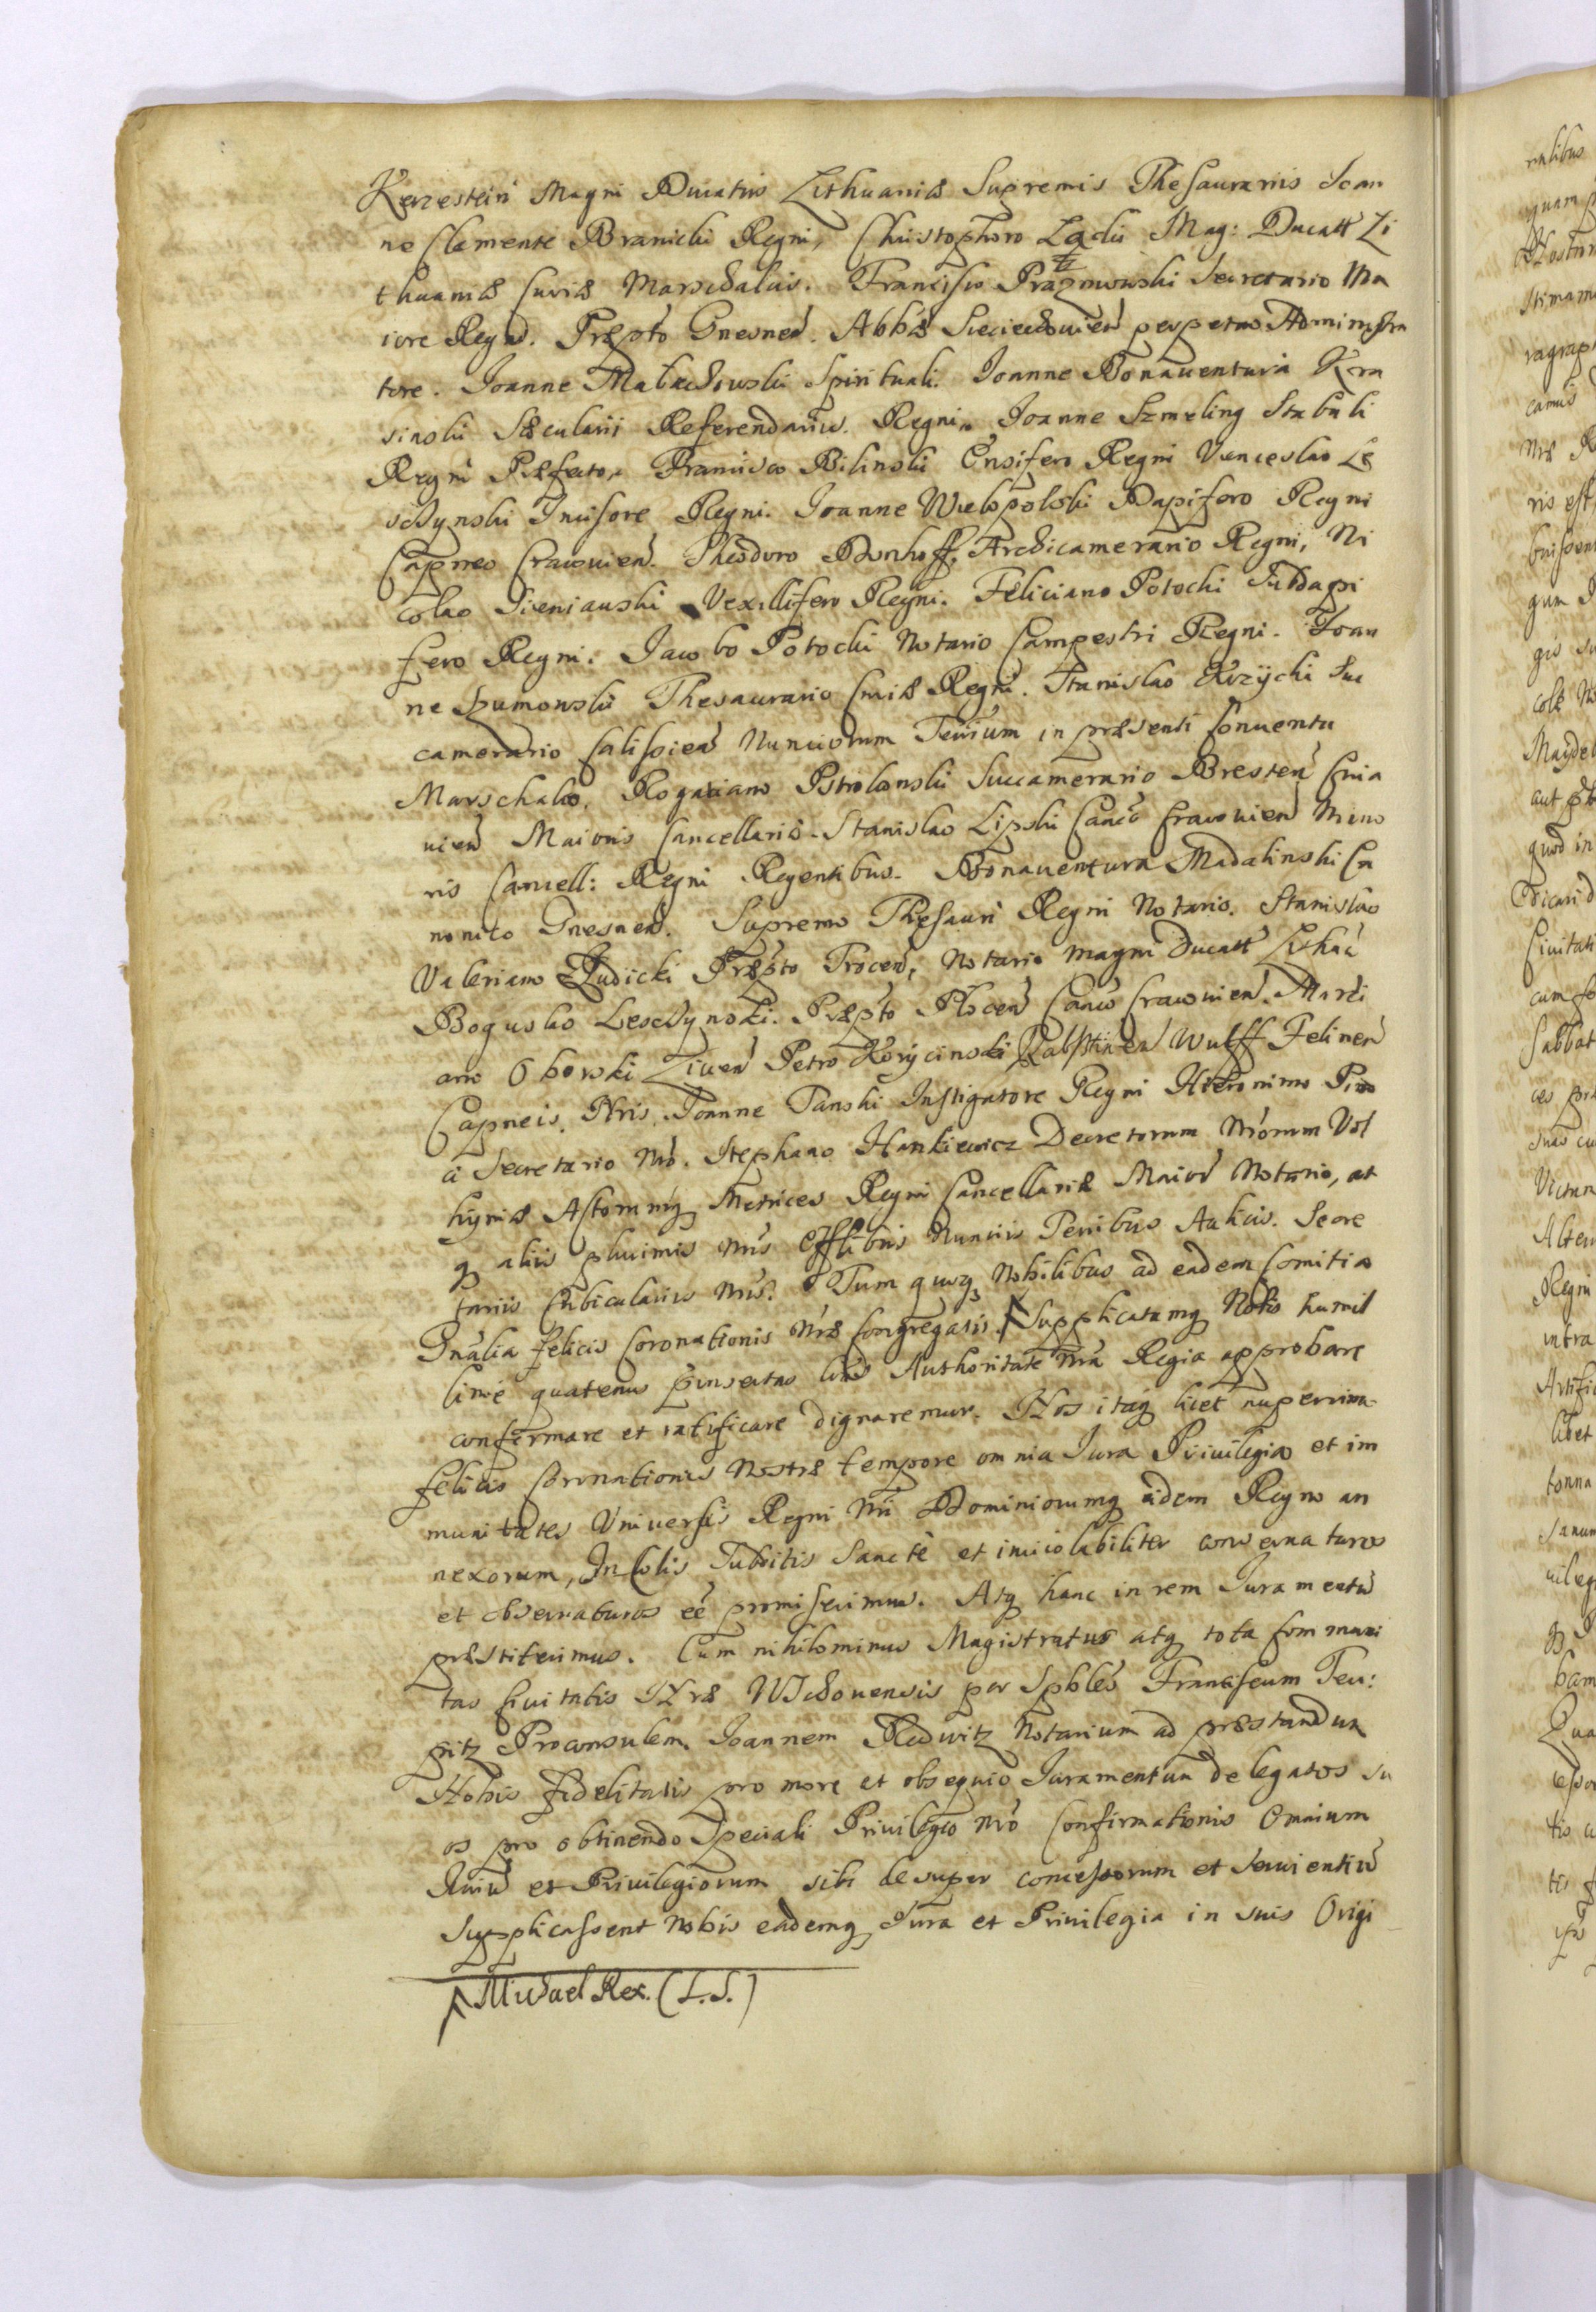 Kerzestein Magni Ducatus Lithuaniæ Supremis Thesaurariis Ioan
ne Clemente Branicki Regni, Christophoro Zacki Mag: Ducatt Li
thuaniæ Curiæ Marschalcis. Francisco Prazmowski Secretario Ma
iore Regni. Præpto Gnesnen. Abbæ Sieciechovien perpetuo Administra
tore. Joanne Malachowski Spirituali. Joanne Bonaventura Kra
sinski Sæculari Referendariis. Regni. Joanne Szmeling Stabuli
Regni Præfecto. Francisco Bilinski Ensifero Regni Venceslao Le
schynski Incisore Regni. Joanne Wielopolski Dapifero Regni
Capneo Cracovien. Theodoro Dönhoff, Archicamerario Regni, Ni
colao Sieniauski Vexillifero Regni. Feliciano Potocki Subdapi
fero Regni. Iacobo Potocki Notario Campestri Regni. Ioan
ne Szumowski Thesaurario Curiæ Regni. Stanislao Krzycki Suc
camerario Calissien Nunciorum Terrium in præsenti Conventu
Marschalco, Rogatiano Pstrokonski Succamerario Bresten Cuia
vien Maioris Cancellariæ. Stanislao Lipski Canco Cracovien Mino
ris Cancell: Regni Regentibus. Bonaventura Madalinski Ca
nonico Gnesnen. Supremo Thesauri Regni Notario. Stanislao
Valeriano Iudicki Præpto Trocen, Notario Magni Ducatt Lithac
Boguslao Leschynski. Præpto Plocen Canco Cracovien. Marti
ano Oborski Liven Petro Korycinski Rabsztinen Wulff Felinen
Capneis. Nris. Joanne Tanski Instigatore Regni Hieronimo Pino
ci Secretario Nro. Stephano Hankiewicz Decretorum Nrorum Vol
hyniæ Actorumq Metrices Regni Cancellariæ Maioris Notario, at
q aliis plurimis Nris Offlibus Nunciis Terribus Aulicis. Secre
tariis Cubiculariis Nris. Tum quoq Nobilibus ad eadem Comitia
Gnalia felicis Coronationis Nræ Congregatis. Supplicatumq Nobis humil
lime quatenus pinsertas lras Authoritate Nra Regia approbare
confirmare et ratificare dignaremur. Nos itaq licet nuperrima
felicis Coronationis Nostræ tempore omnia Iura Privilegia et im
munitates Universis Regni Nri Dominiorumq eidem Regno an
nexorum, Incolis Subditis Sancte et inviolabiliter conservaturos
et observaturos eé promiserimus. Atq hanc in rem Iuramentu
præstiterimus. Cum nihilominus Magistratus atq tota Communi
tas Civitatis Nræ Wschovensis per Spbles Franciscum Teu:
pitz Proconsulem. Joannem Redwitz Notarium ad præstandum
Nobis fidelitatis pro more et obsequio Iuramentum delegatos su
os pro obtinendo Speciali Privilegio Nro Confirmationis Omnium
Iuriu et Privilegiorum sibi desuper concessorum et servientiu
supplicassent Nobis eademq Iura et Privilegia in suis Origi
Michael Rex. (L.S.)